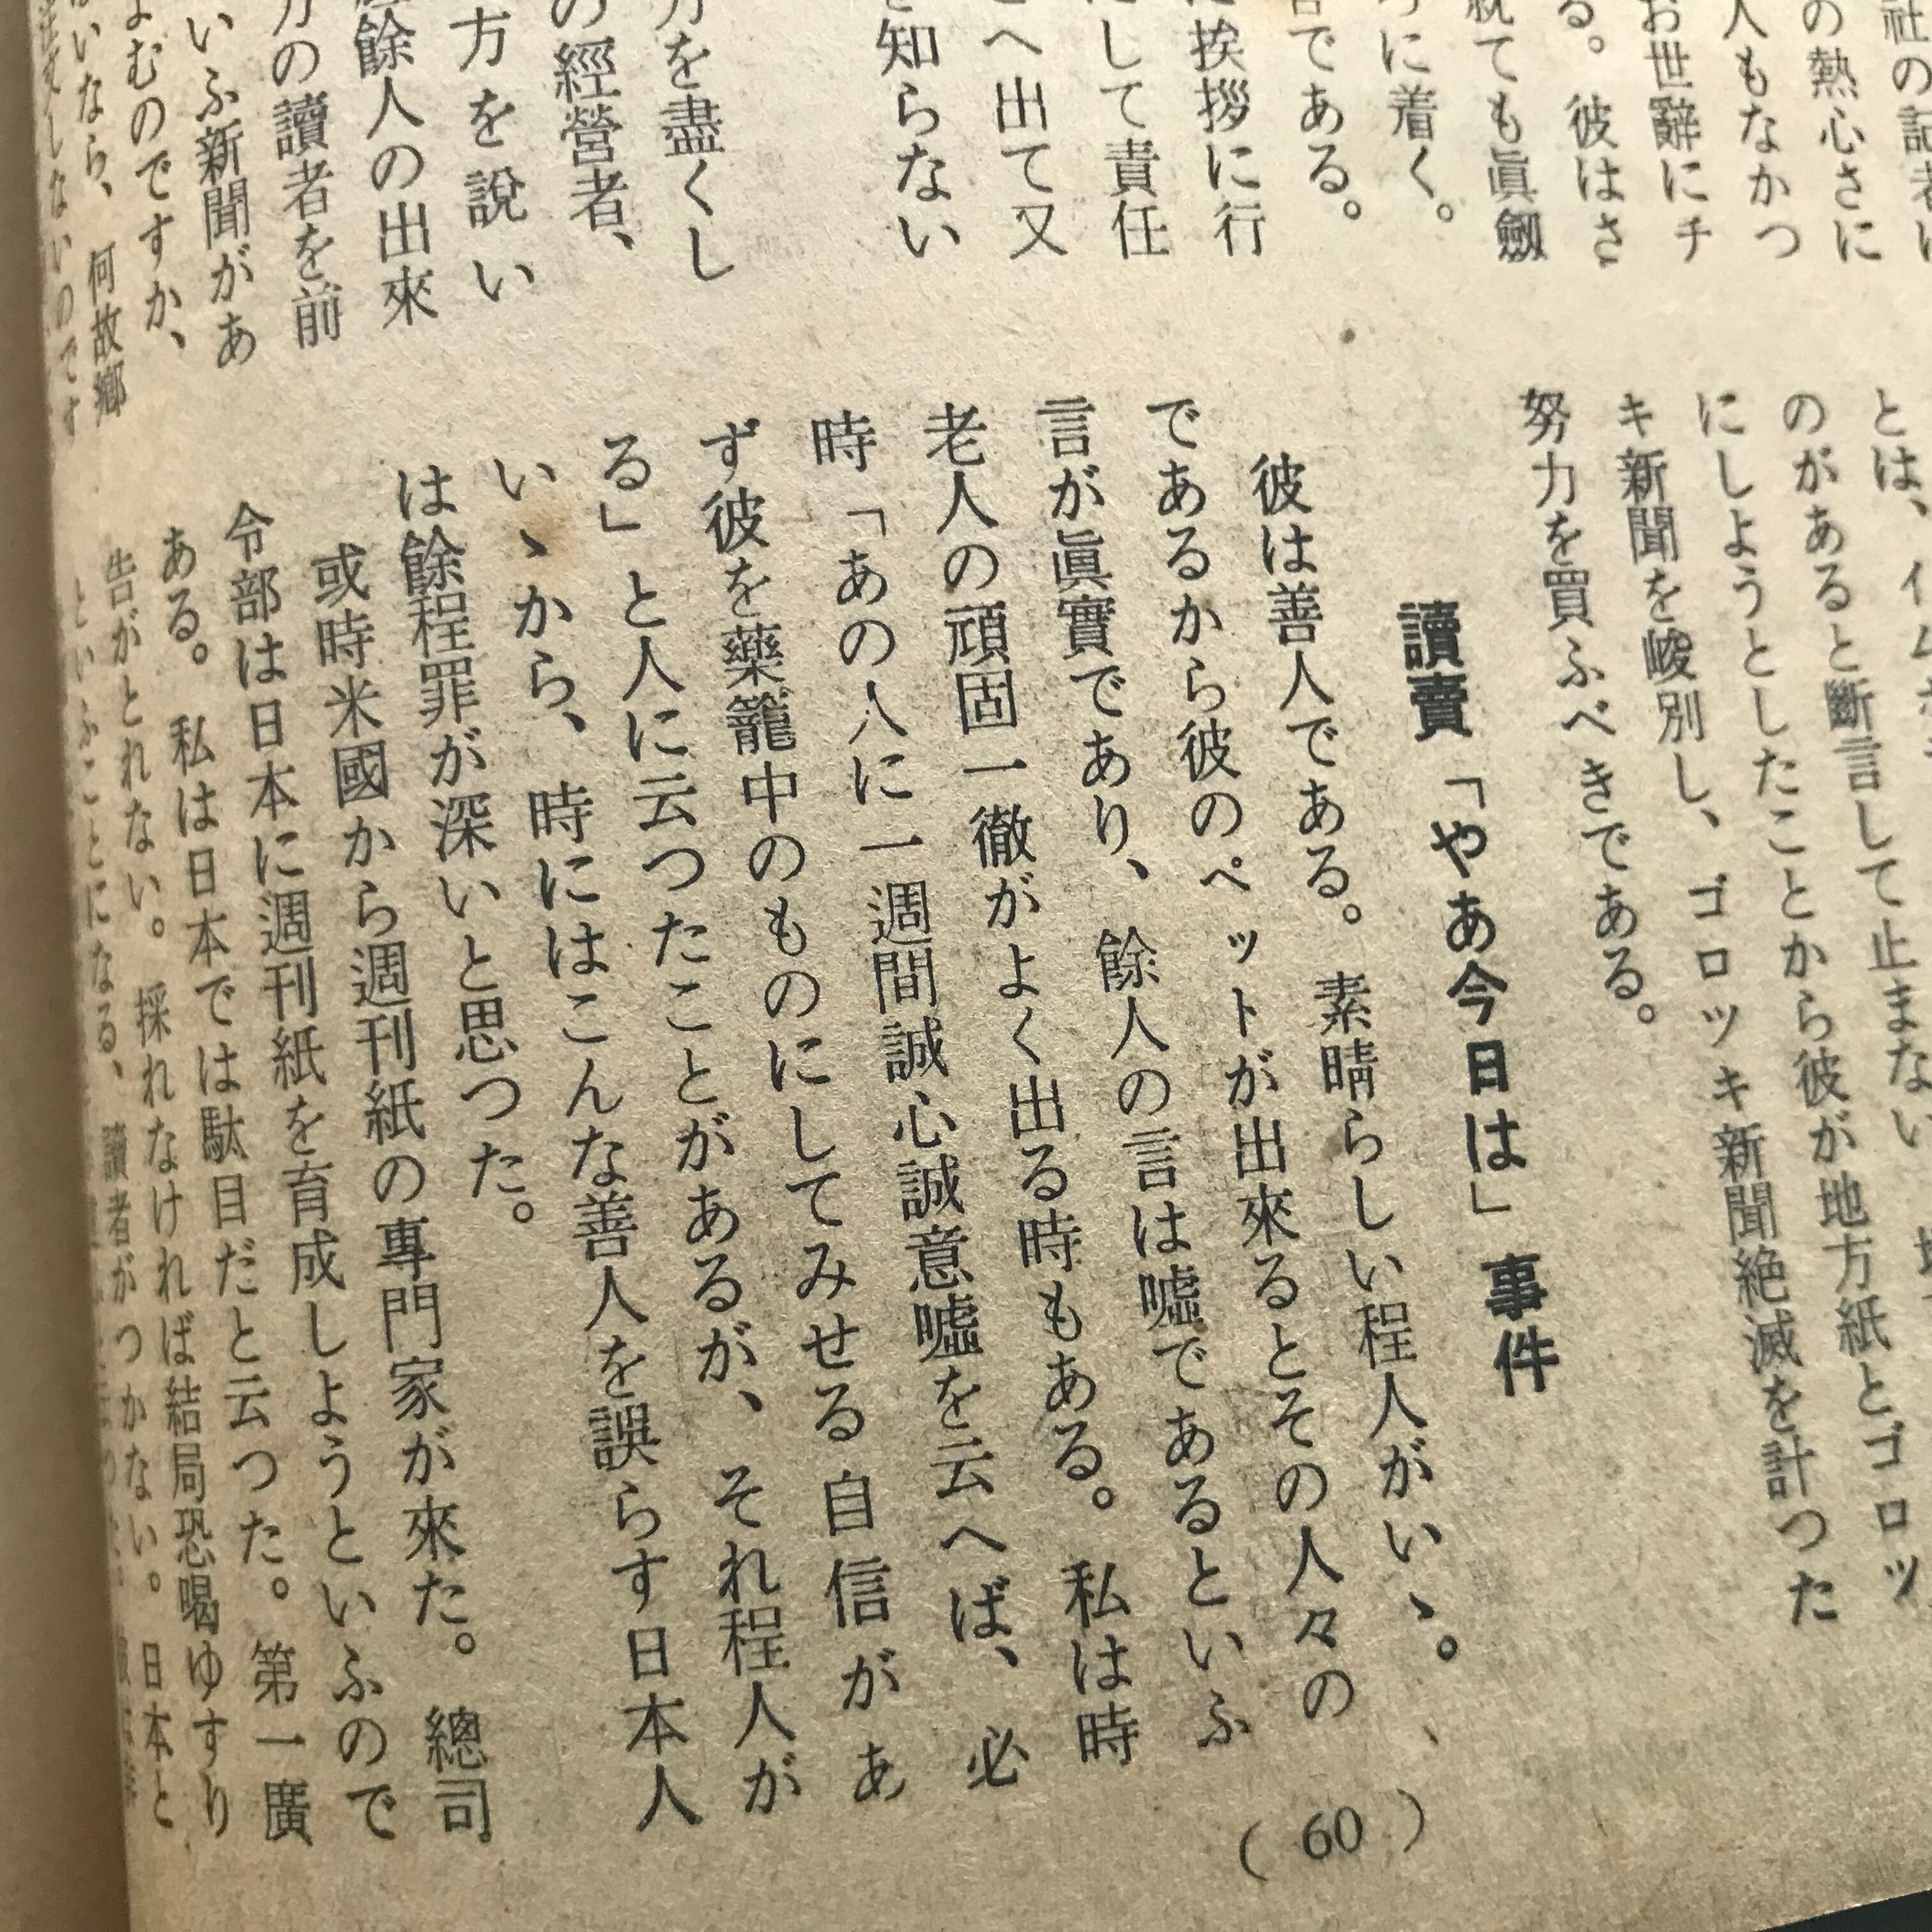 社の記者は
の熱心さに
人もなかつ
お世辭にチ
る。彼はさ
就ても眞劔
に着く。
である。
挨拶に行
にして責任
へ出て又
を知らない
力を盡くし
の經營者、
方を說い
餘人の出來
力の讀者を前
いふ新聞があ
よむのですか、
いなら、何故鄕
しないのです
とは、
のがあると斷言して止まない
にしようとしたことから彼が地方紙とゴロッ
キ新聞を峻別し、ゴロツキ新聞絶滅を計つた
努力を買ふべきである。
讀賣「やあ今日は」事件
彼は善人である。素晴らしい程人がいゝ。
であるから彼のペットが出來るとその人々の
言が眞實であり、餘人の言は噓であるといふ
老人の頑固一徹がよく出る時もある。私は時
時「あの人に一週間誠心誠意噓を云へば、必
ず彼を藥籠中のものにしてみせる自信があ
る」と人に云つたことがあるが、それ程人が
いゝから、時にはこんな善人を誤らす日本人
は餘程罪が深いと思つた。
或時米國から週刊紙の專門家が來た。總司
令部は日本に週刊紙を育成しようといふので
ある。私は日本では駄目だと云つた。第一廣
告がとれない。採れなければ結局恐喝ゆすり
といふことになる、讀者がつかない。日本と
(60)